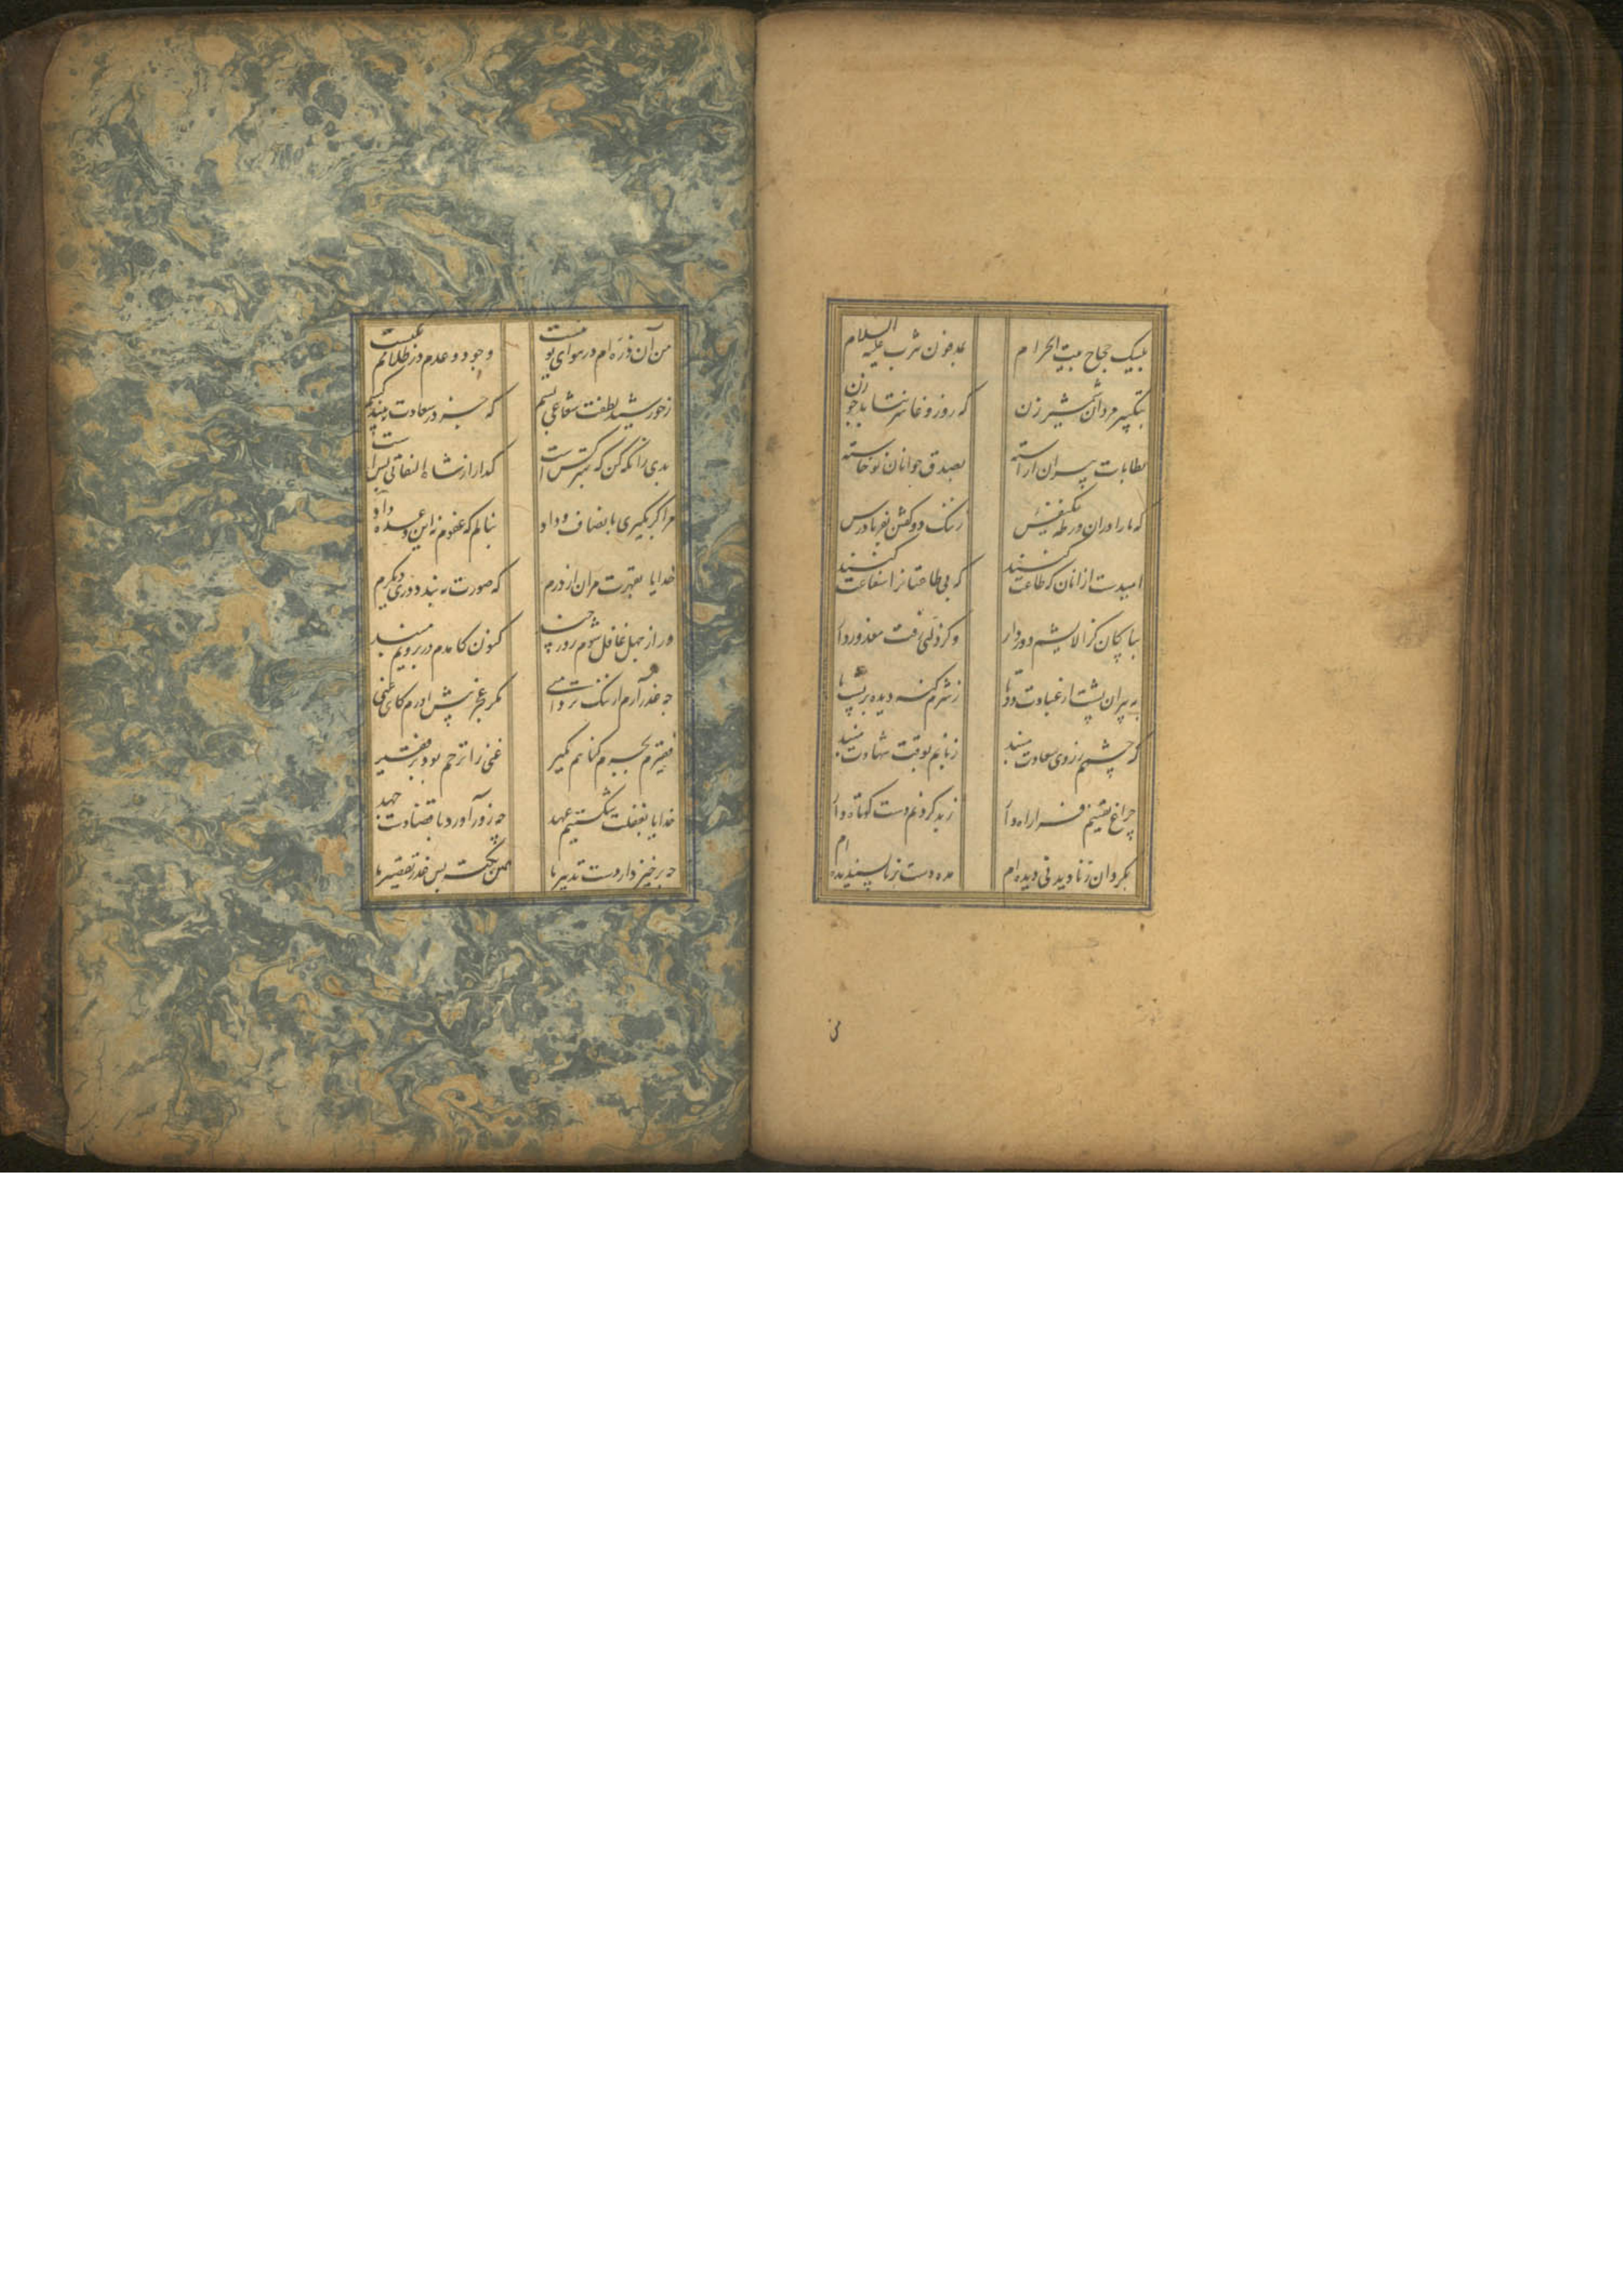 بلبیک حجاج بیت الحرام بمدفون یثرب علیه السلام
بتکبیر مردان شمشیر زن که روز وغا سر نتابد جو زن
بطاعات پیران اراسته بصدق جوانان نوخاسته
که مارا دران ورطه یکنفس زننک دو گفتن بفریادرس
امیدست ازانان که طاعت کنند که بی طاعتانرا شفاعت کنند
بپاکان کز الایشم دور دار وکر زلتی رفت معذور دار
به پیران پشت از عبادت دوتا زشرم کنه دیده بر پشت پا
که چشمم ز روی سعادت مبند زبانم بوقت شهادت مبند
چراغ یقینم فرا راه دار ز بد کردنم دست کوتاه دار
بکردان ز نادیدنی دیده ام مده دست بر ناپسندیده ام
من
من آن ذره ام در هوای تو نیست وجود و عدم در ظلامم یکیست
زخورشید لطفت شعاعی بسم که جز در سعادت نبیند کسم
بدی را نکه کن که بهتر کس است کدارا ز شاه التفاتی بس است
مرا کر بکیری بانصاف و داد بنالم که عفوم نه این وعده داد
خدایا بقهرت مران از درم که صورت نبندد دری دیکرم
ور از جهل غافل شوم روز چند کنون کامدم در برویم مبند
چه عذر آرم از ننک تر دامنی مکر عجز پیش اورم کای غنی
فقیرم بجرم کناهم مکیر غنی را ترحم بود بر فقیر
خدایا بغفلت شکستیم عهد چه زور آورد با قضا دست جهد
چه برخیزد از دست تدبیر ما همین نکته بس عذر تقصیر ما